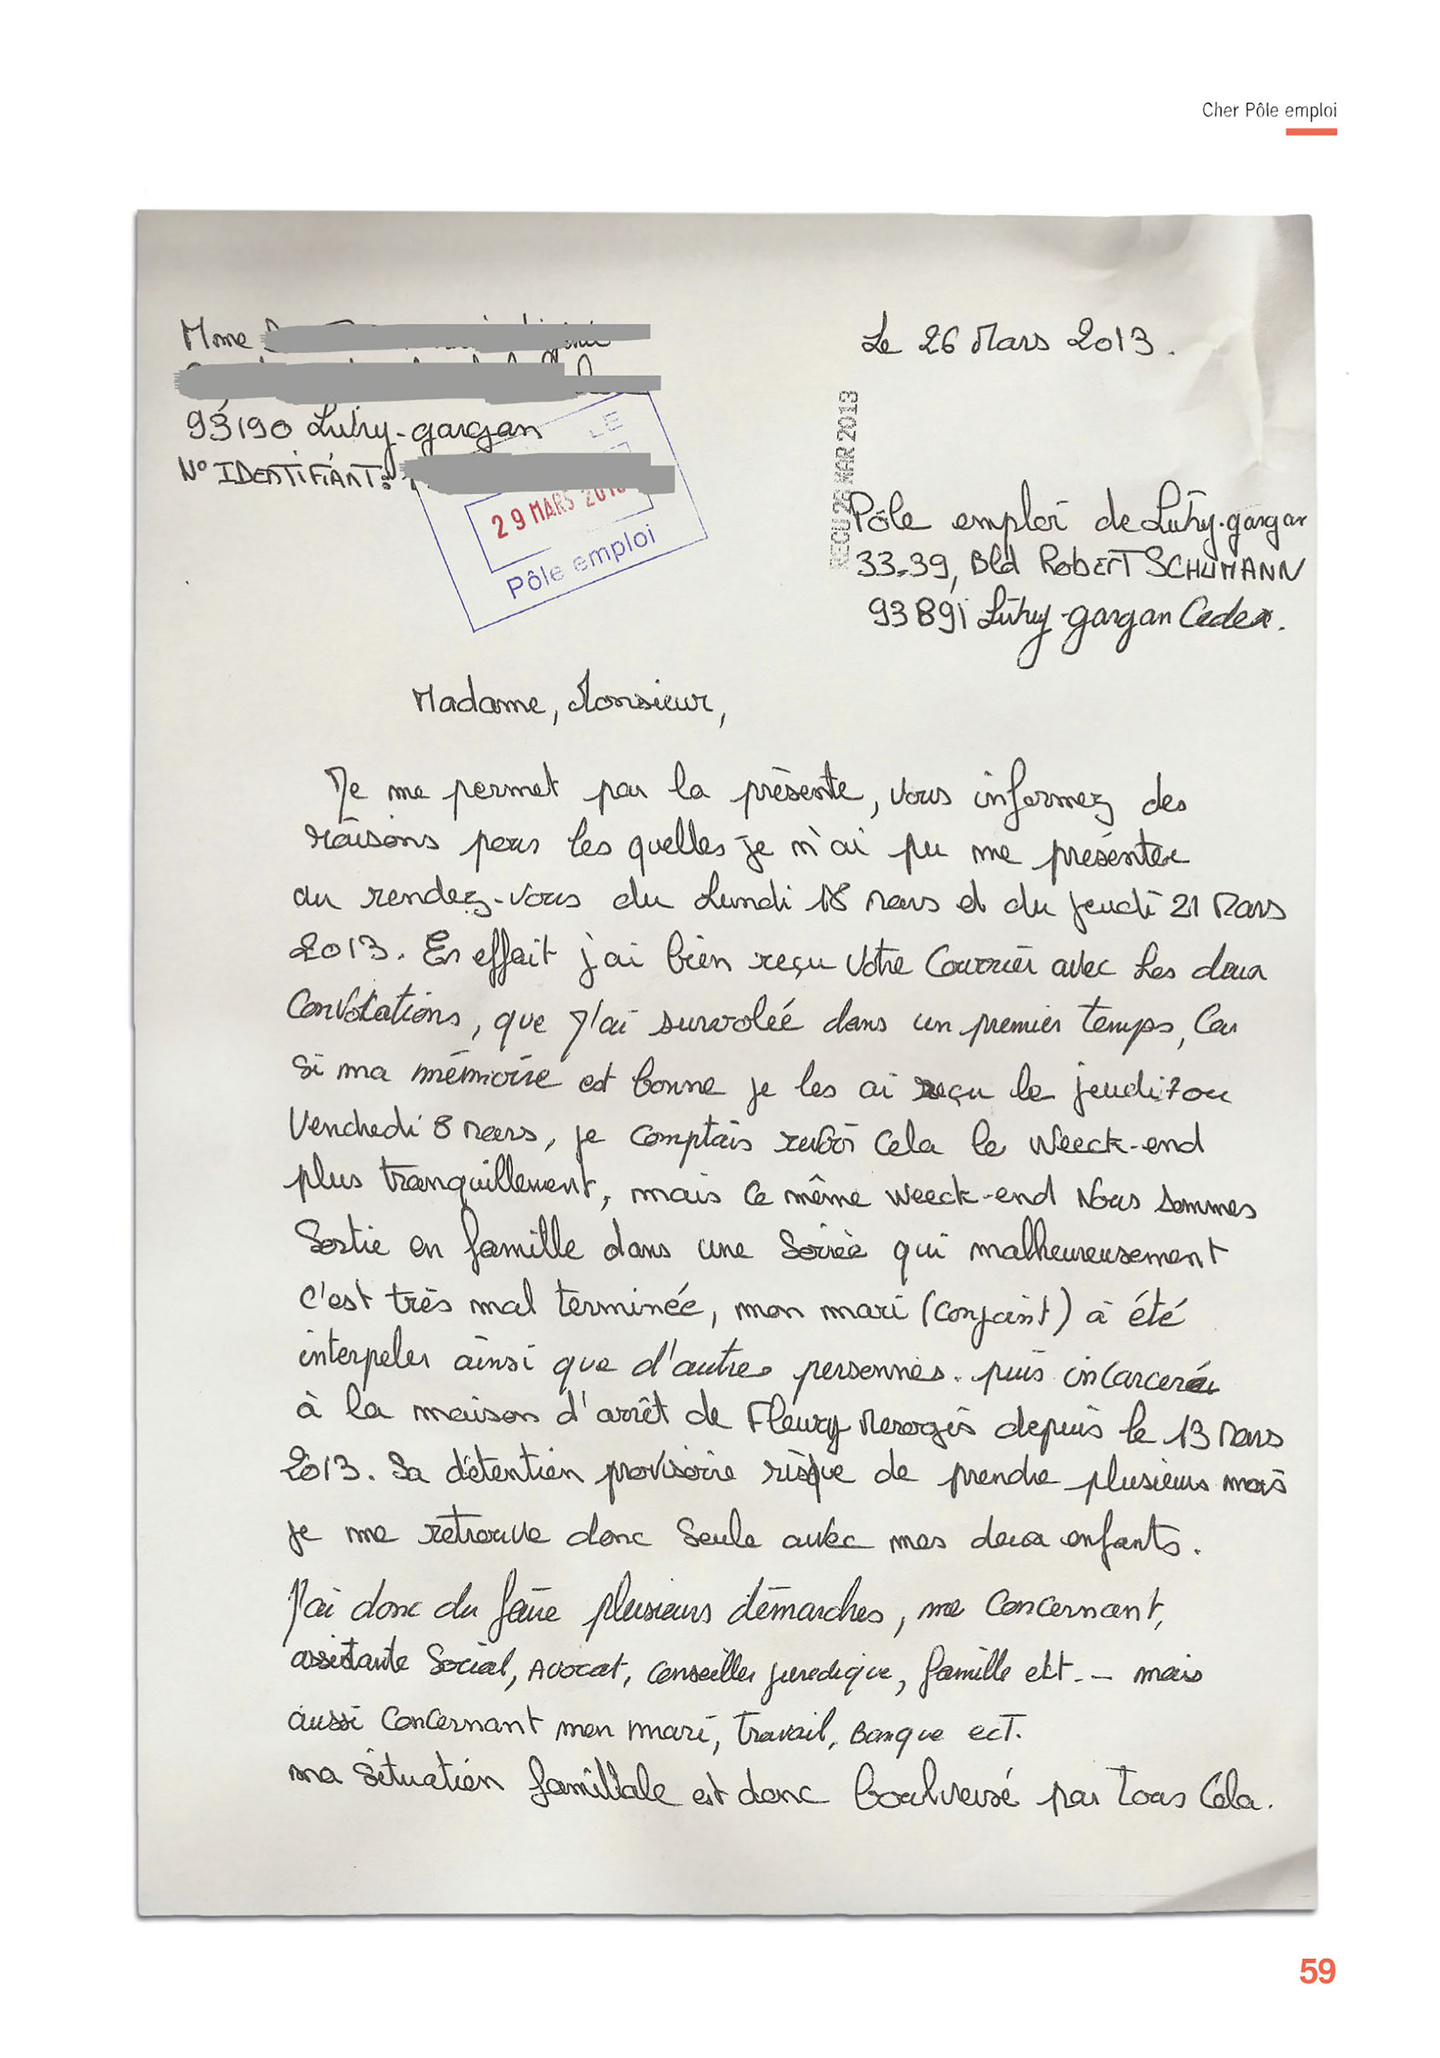 Cher Pôle emploi
Mme
Le 26 Mars 2013.
93190 Livry-gargan
N° IDENTIFIANT:
29 MARS
Pôle emploi
REÇU 28 MAR 2013
Pôle emploi de Livry-gargan
33-39, Bld ROBERT SCHUMANN
93891 Livry-gargan Cedex.
Madame, Monsieur,
Je me permet par la présente, vous informez des
raisons pour les quelles je n'ai pu me présenter
au rendez-vous du Lundi 18 Mars et du jeudi 21 Mars
2013. En effait j'ai bien reçu votre Courrier avec les deux
Convocations, que j'ai survolée dans un premier temps, Car
si ma mémoire est bonne je les ai reçu le jeudi 7 ou
Vendredi 8 Mars, je comptais revoir Cela le Weeck-end
plus tranquillement, mais ce même weeck-end Nous sommes
Sortie en famille dans une Soirée qui malheureusement
C'est très mal terminée, mon mari (conjoint) à été
interpeler ainsi que d'autres personnes. puis incarcerée
à la maison d'arrêt de Fleury Merogis depuis le 13 Mars
2013. Sa détention provisoire risque de prendre plusieurs mois
je me retrouve donc Seule avec mes deux enfants.
J'ai donc du faire plusieurs démarches, me Concernant,
assistante Social, Avocat, Conseiller juredique, famille ect.— mais
aussi Concernant mon mari, Travail, Banque ect.
ma Situation familliale est donc boulversé par Tous Cela.
59